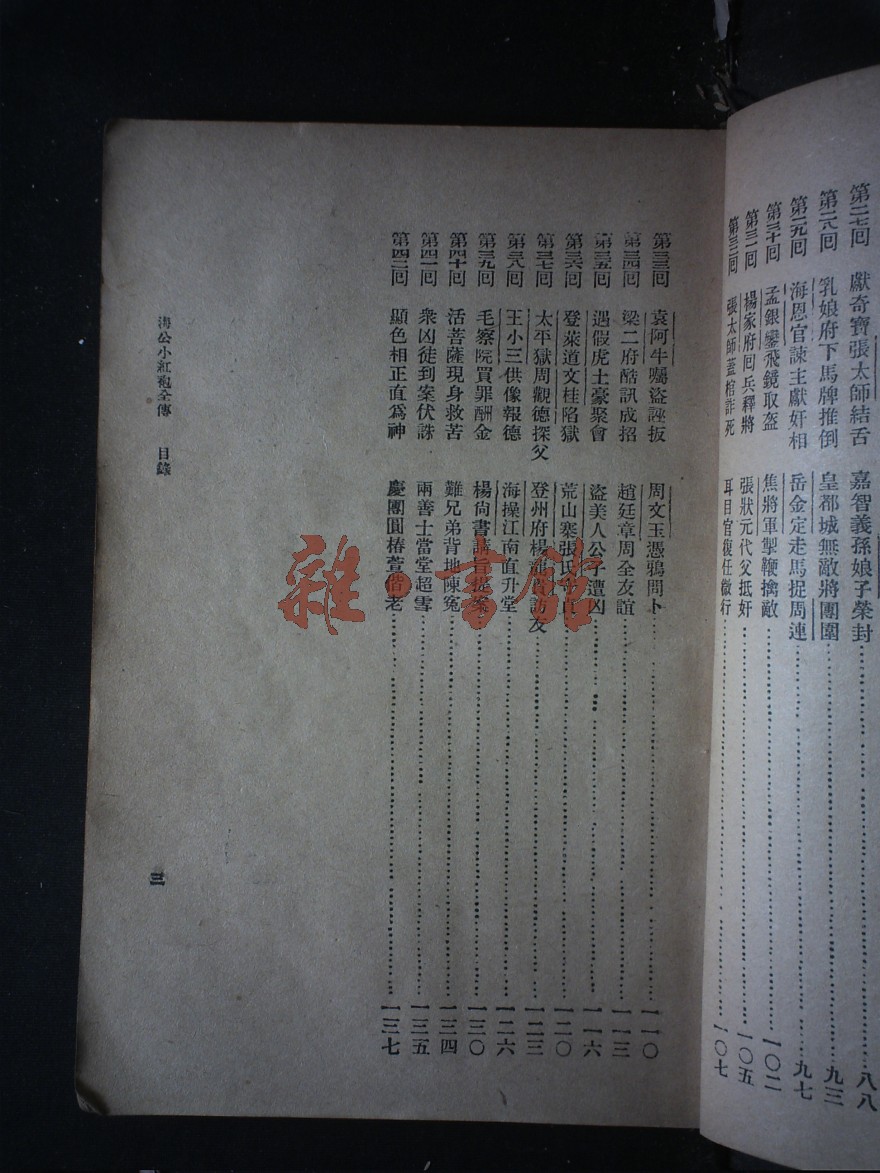 第二七回 獻奇寶張太師結舌 嘉智義孫娘子榮封 八八
第二八回 乳娘府下馬牌推倒 皇都城無敵將團圍 九三
第二九回 海恩官諫主獻奸相 岳金定走馬捉周連 九七
第三十回 孟銀鑾飛鏡取盔 焦將軍掣鞭擒敵 一〇二
第三一回 楊家府回兵釋將 張狀元代父抵奸 一〇五
第三二回 張太師蓋棺詐死 耳目官復任微行 一〇七
第三三回 袁阿牛囑盜誣扳 周文玉憑鴉問卜 一一〇
第三四回 梁二府酷訊成招 趙廷章周全友誼 一一三
第三五回 遇假虎土豪聚會 盜美人公子遭凶 一一六
第三六回 登萊道文桂陷獄 荒山寨張氏 一二〇
第三七回 太平獄周觀德探父 登州府楊 訪友 一二三
第三八回 王小三供像報德 海操江南直升堂 一二六
第三九回 毛察院買罪酬金 楊尚書請旨提案 一三〇
第四十回 活菩薩現身救苦 難兄弟背地陳冤 一三四
第四一回 衆凶徒到案伏誅 兩善士當堂超雪 一三五
第四二回 顯色相正直爲神 慶團圓椿萱偕老 一三七
海公小紅袍全傳 目錄
三
雜·書館